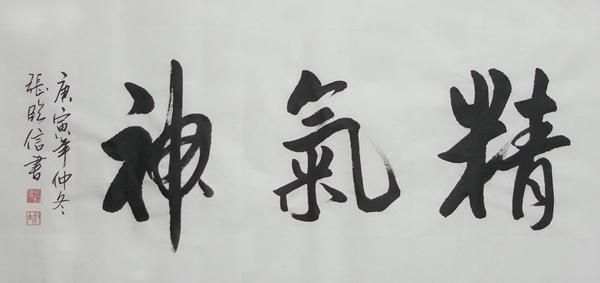 精氣神
庚寅年仲冬
張臨信書